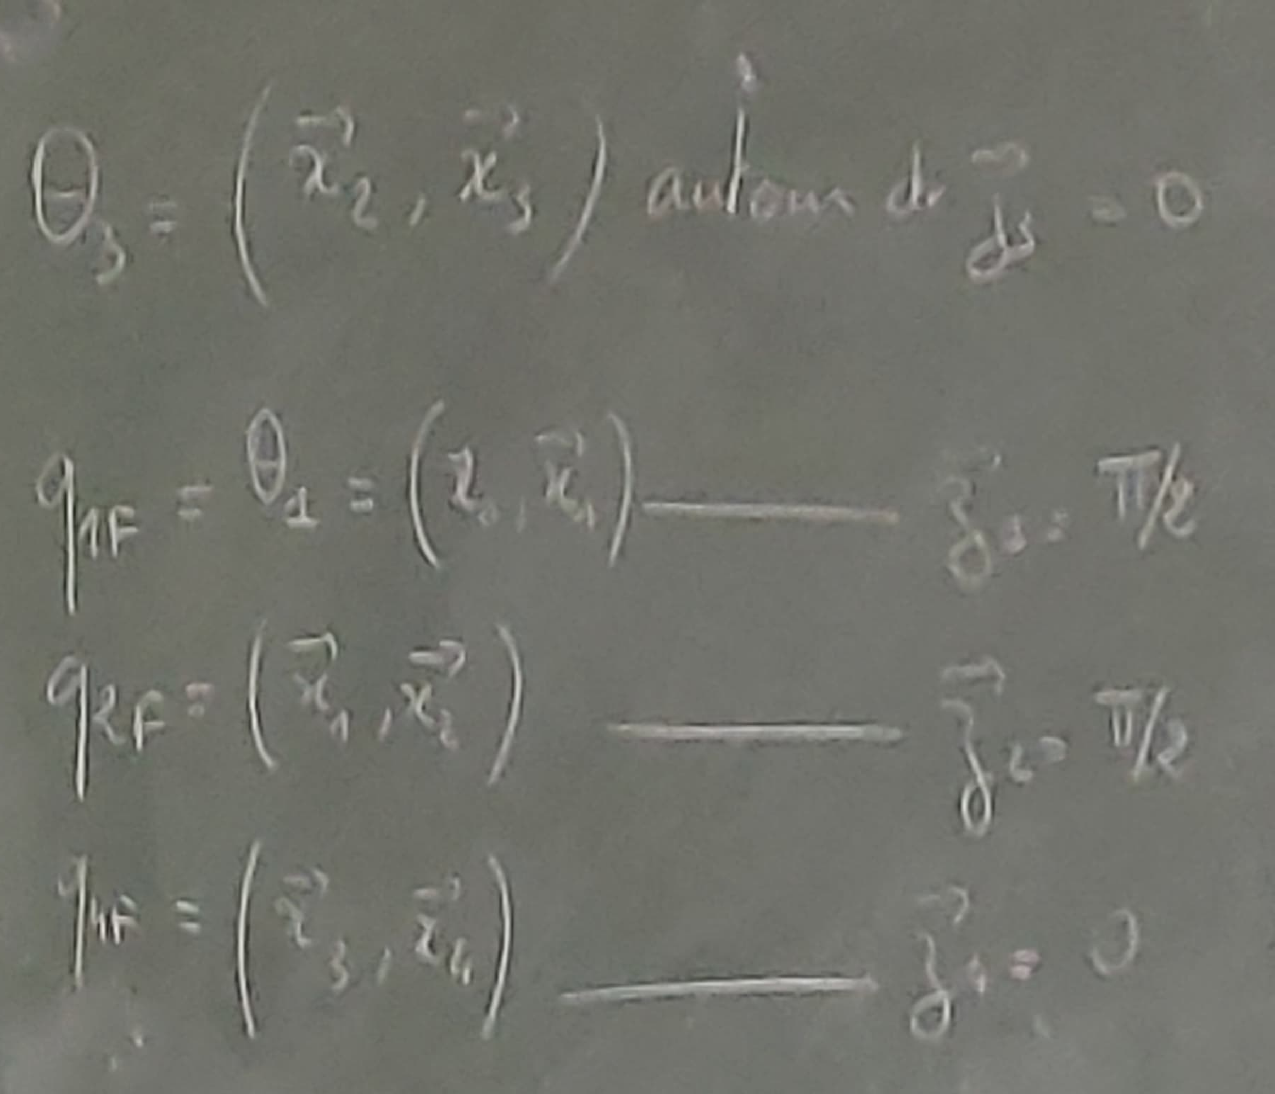 θ₃ = (x⃗₂, x⃗₃) autour de z⃗₃ = 0
q₁F = θ₁ = (x⃗₀, x⃗₁) ——— z⃗₁ = π/2
q₂F = (x⃗₁, x⃗₂) ——— z⃗₂ = π/2
q₄F = (x⃗₃, x⃗₄) ——— z⃗₄ = 0